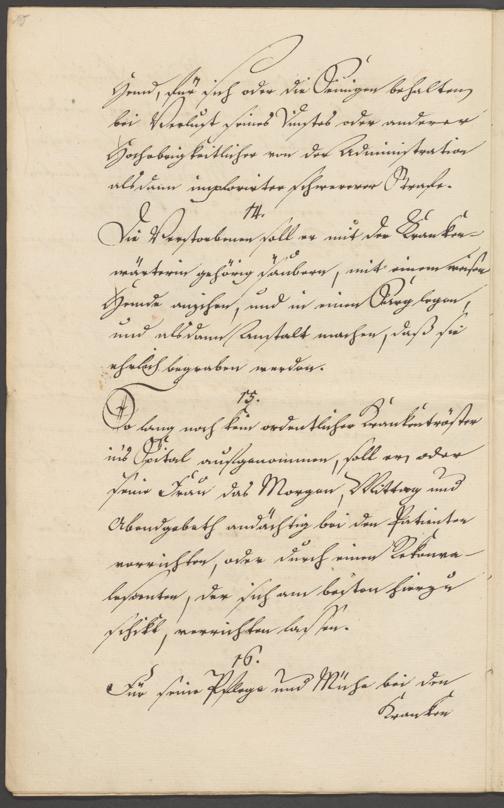 Hemd, für sich oder die Seinigen behalten,
bei Verlust seines Dinstes oder anderer
Hochobrigkeitlicher von der Administration
alsdann implorirter schwererer Strafe.
14.
Die Verstorbenen soll er mit der Kranken-
wärterin gehörig säubern, mit einem weisen
Hemde anziehen, und in einen Sarg legen,
und alsdann Anstalt machen, daß sie
ehrlich begraben werden.
15.
So lang noch kein ordentlicher Krankentröster
in's Spital aufgenommen, soll er, oder
seine Frau das Morgen, Mittag und
Abendgebeth andächtig bei den Patienten
verrichten, oder durch einen Rekonva-
leszenten, der sich am besten hierzu
schikt, verrichten lassen.
16.
Für seine Pflege und Mühe bei den
Kranken